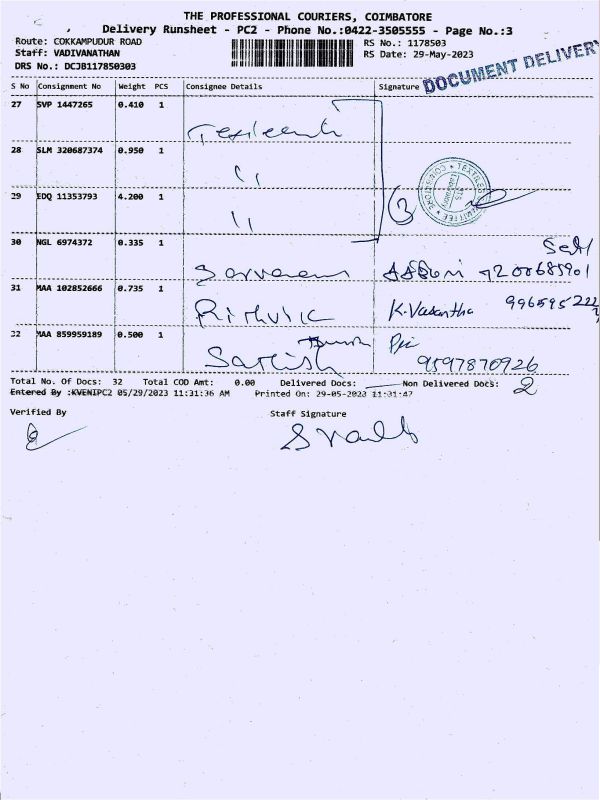 THE PROFESSIONAL COURIERS, COIMBATORE
Delivery Runsheet - PC2 - Phone No.:0422-3505555 - Page No.:3
Route: COKKAMPUDUR ROAD RS No.: 1178503
Staff: VADIVANATHAN RS Date: 29-May-2023
DRS No.: DCJB117850303
DOCUMENT DELIVERY
S No Consignment No Weight PCS Consignee Details Signature
27 SVP 1447265 0.410 1
28 SLM 320687374 0.950 1
29 EDQ 11353793 4.200 1
3
30 NGL 6974372 0.335 1
31 MAA 102852666 0.735 1 Rithvik K.Vasantha
MAA 859959189 0.500 1 Sathish 9597870926
Total No. Of Docs: 32 Total COD Amt: 0.00 Delivered Docs: Non Delivered Docs: 2
Entered By :KVENIPC2 05/29/2023 11:31:36 AM Printed On: 29-05-2023 11:31:47
Verified By Staff Signature